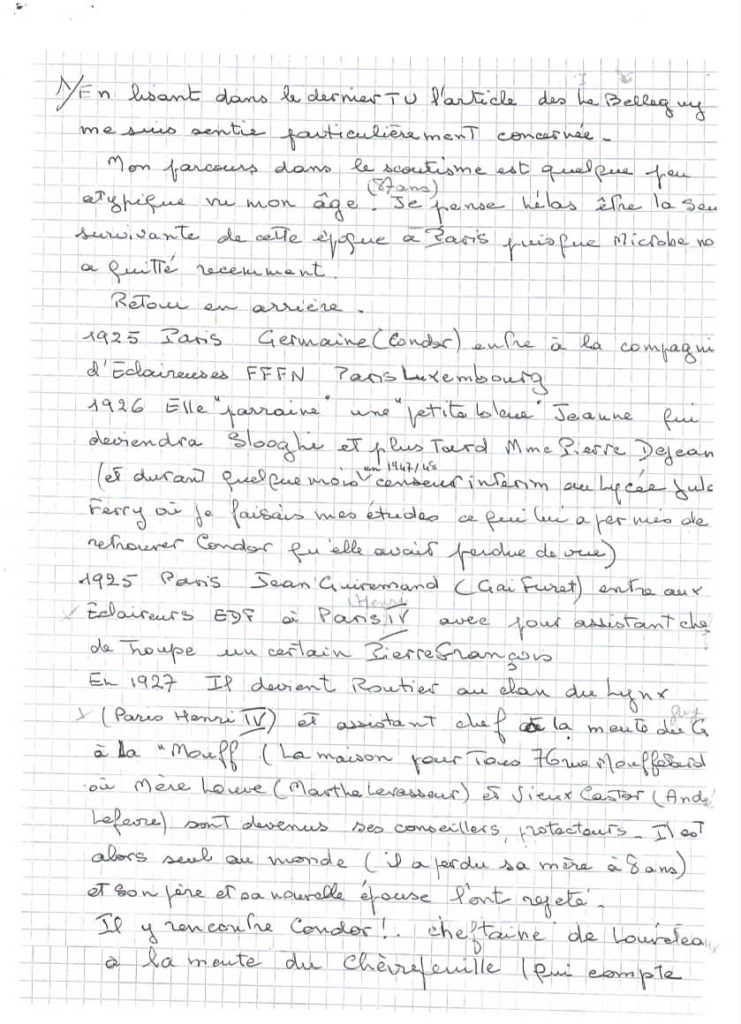 1/ En lisant dans le dernier TU l'article des Le Belleguy
me suis sentie particulièrement concernée.
Mon parcours dans le scoutisme est quelque peu
atypique vu mon âge (87 ans). Je pense hélas être la seu
survivante de cette époque à Paris puisque Microbe no
a quitté recemment.
Retour en arrière.
1925 Paris Germaine (Condor) entre à la compagni
d'Eclaireuses FFFN Paris Luxembourg
1926 Elle "parraine" une "petite bleue" Jeanne qui
deviendra Slooghi et plus Tard Mme Pierre Dejean
(et durant quelque mois en 1947/48 censeur interim au Lycée Jule
Ferry où je faisais mes études ce qui lui a permis de
retrouver Condor qu'elle avait perdue de vue)
1925 Paris Jean Guiremand (Gai Furet) entre aux
Éclaireurs EDF à Paris (Henri IV avec pour assistant che
de Troupe un certain Pierre François
En 1927 Il devient Routier au clan du Lynx
(Paris Henri IV) et assistant chef à la meute du G
à la "Mouff (La maison pour Tous 76 rue Mouffetard
où Mère Louve (Marthe Levasseur) et Vieux Castor (André
Lefevre) sont devenus ses conseillers, protecteurs. Il est
alors seul au monde (il a perdu sa mère à 8 ans)
et son père et sa nouvelle épouse l'ont rejeté.
Il y rencontre Condor!. cheftaine de Louveteaux
à la meute du Chèvrefeuille (qui compte